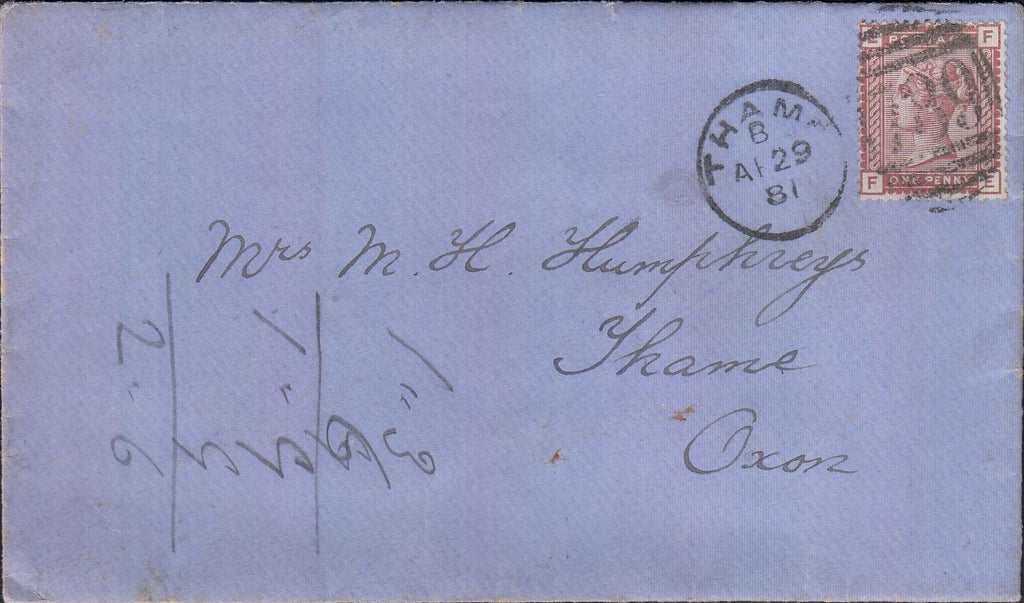 E F
POSTAGE
F ONE PENNY E
THAM
B
AP 29
81
Mrs M. H. Humphreys
Thame
Oxon
2 " 6